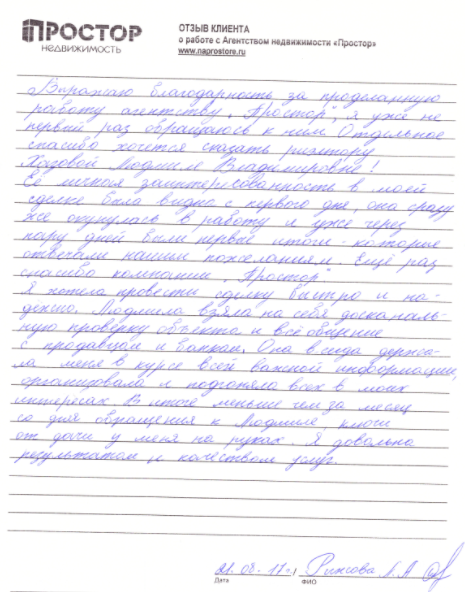 ПРОСТОР
НЕДВИЖИМОСТЬ
ОТЗЫВ КЛИЕНТА
о работе с Агентством недвижимости «Простор»
www.naprostore.ru
Выражаю благодарность за проделанную
работу агентству "Простор", я уже не
первый раз обращаюсь к ним. Отдельное
спасибо хочется сказать риэлтору
Людмиле Владимировне!
Её личная заинтересованность в моей
сделке была видна с первого дня, она сразу
же окунулась в работу и уже через
пару дней были первые итоги - которые
отвечали нашим пожеланиям. Ещё раз
спасибо компании "Простор"
Я хотела провести сделку быстро и на-
дежно. Людмила взяла на себя доскональ-
ную проверку объекта и всё общение
с продавцом и банком. Она всегда держа-
ла меня в курсе всей важной информации,
организовала и подгоняла всех в моих
интересах. В итоге меньше чем за месяц
со дня обращения к Людмиле, ключи
от дачи у меня на руках. Я довольна
результатом и качеством услуг.
Дата
ФИО